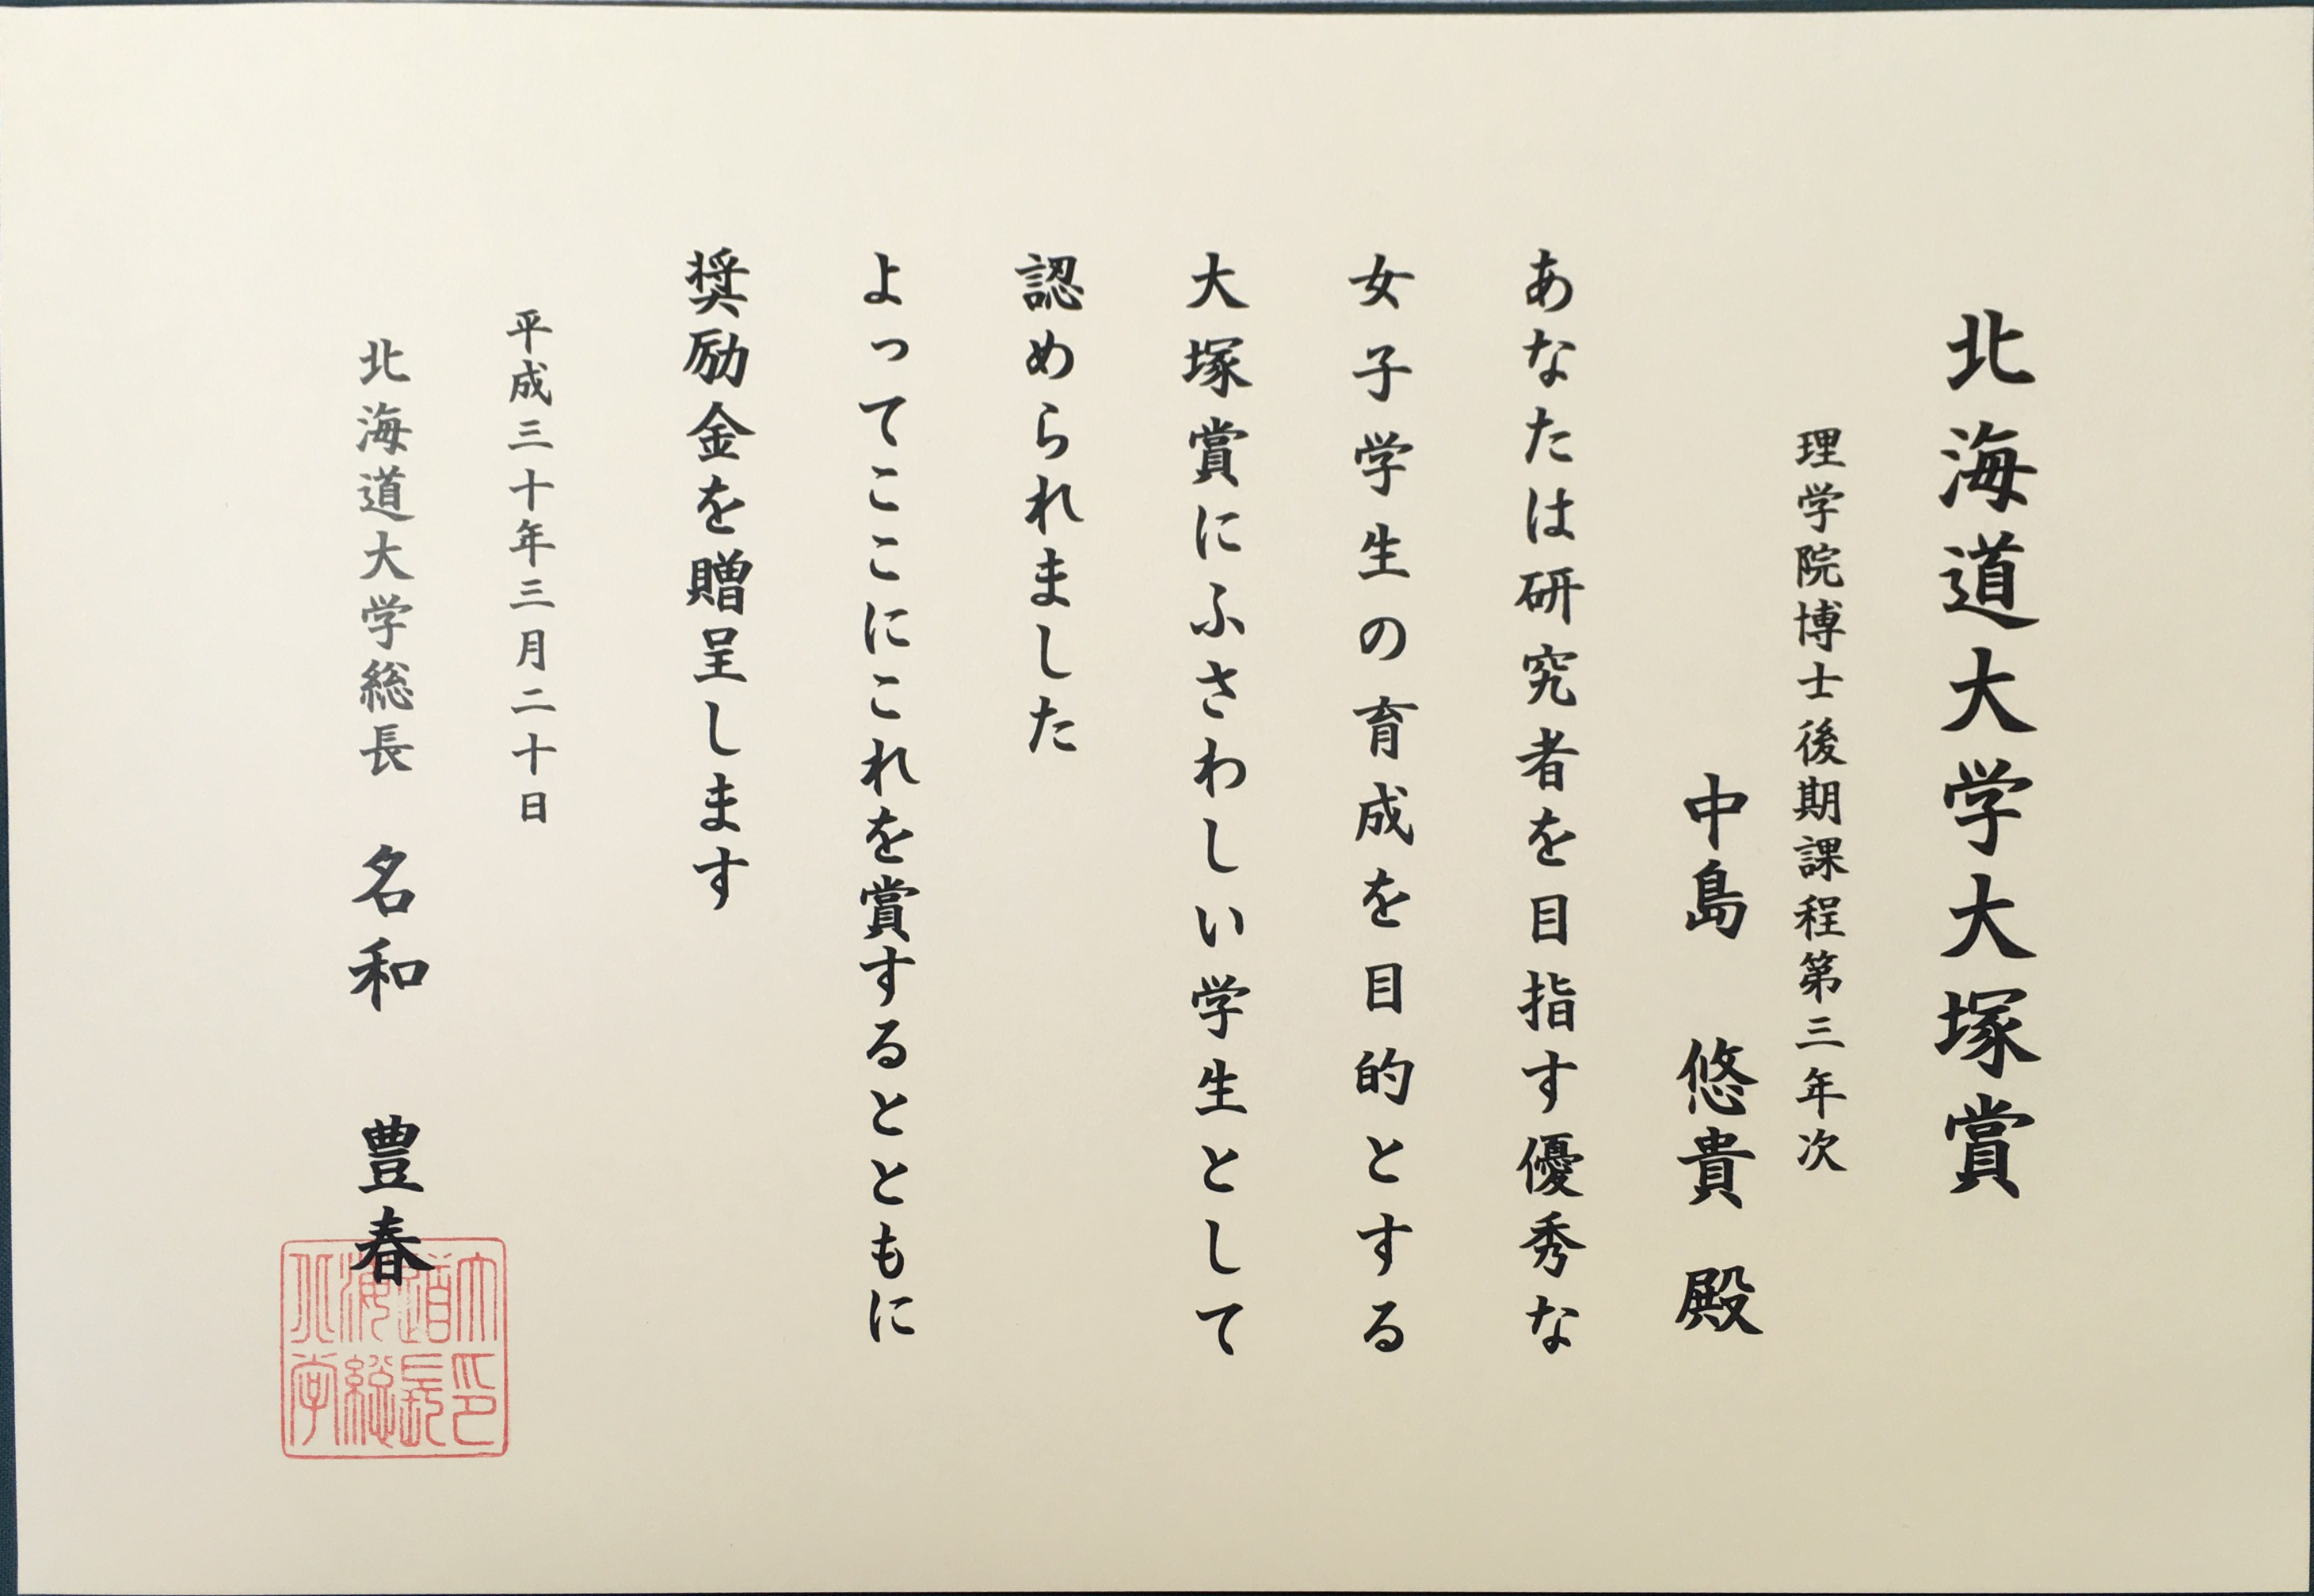 北海道大学大塚賞
理学院博士後期課程第三年次
中島 悠貴 殿
あなたは研究者を目指す優秀な
女子学生の育成を目的とする
大塚賞にふさわしい学生として
認められました
よってここにこれを賞するとともに
奨励金を贈呈します
平成三十年三月二十日
北海道大学総長 名和 豊春
北海道大
学総長印